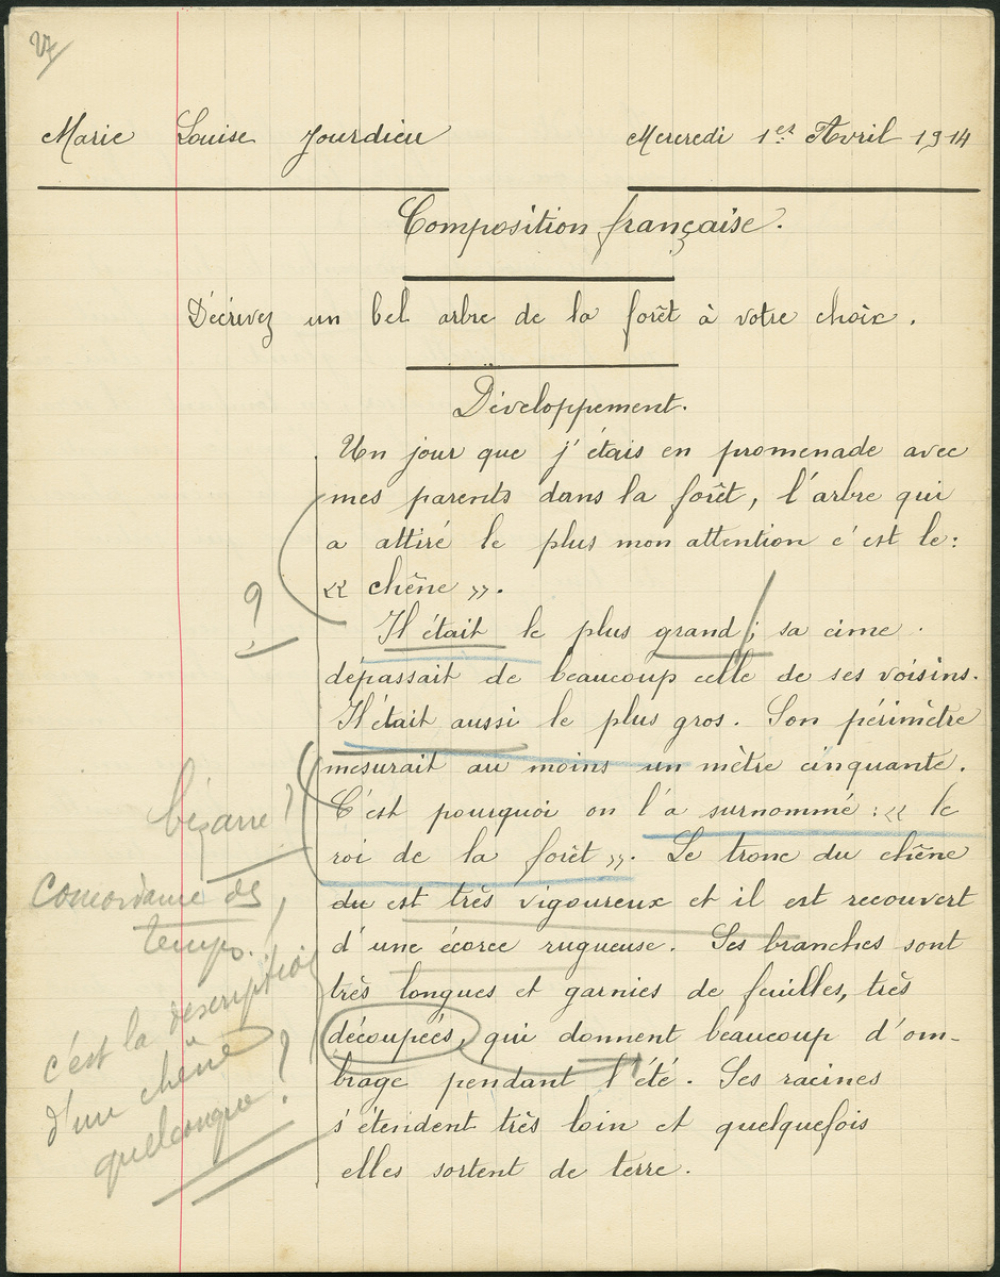 Marie Louise Jourdieu
Mercredi 1er Avril 1914
Composition française.
Décrivez un bel arbre de la forêt à votre choix.
Développement.
Un jour que j'étais en promenade avec
mes parents dans la forêt, l'arbre qui
a attiré le plus mon attention c'est le:
« chêne ».
?
Il était le plus grand; sa cime
dépassait de beaucoup celle de ses voisins.
Il était aussi le plus gros. Son périmètre
mesurait au moins un mètre cinquante.
C'est pourquoi on l'a surnommé: « le
roi de la forêt ». Le tronc du chêne
du est très vigoureux et il est recouvert
d'une écorce rugueuse. Ses branches sont
très longues et garnies de feuilles, très
découpées, qui donnent beaucoup d'om-
brage pendant l'été. Ses racines
s'étendent très loin et quelquefois
elles sortent de terre.
bizarre !
Concordance des
temps. !
c'est la description
d'un chêne
quelconque ?